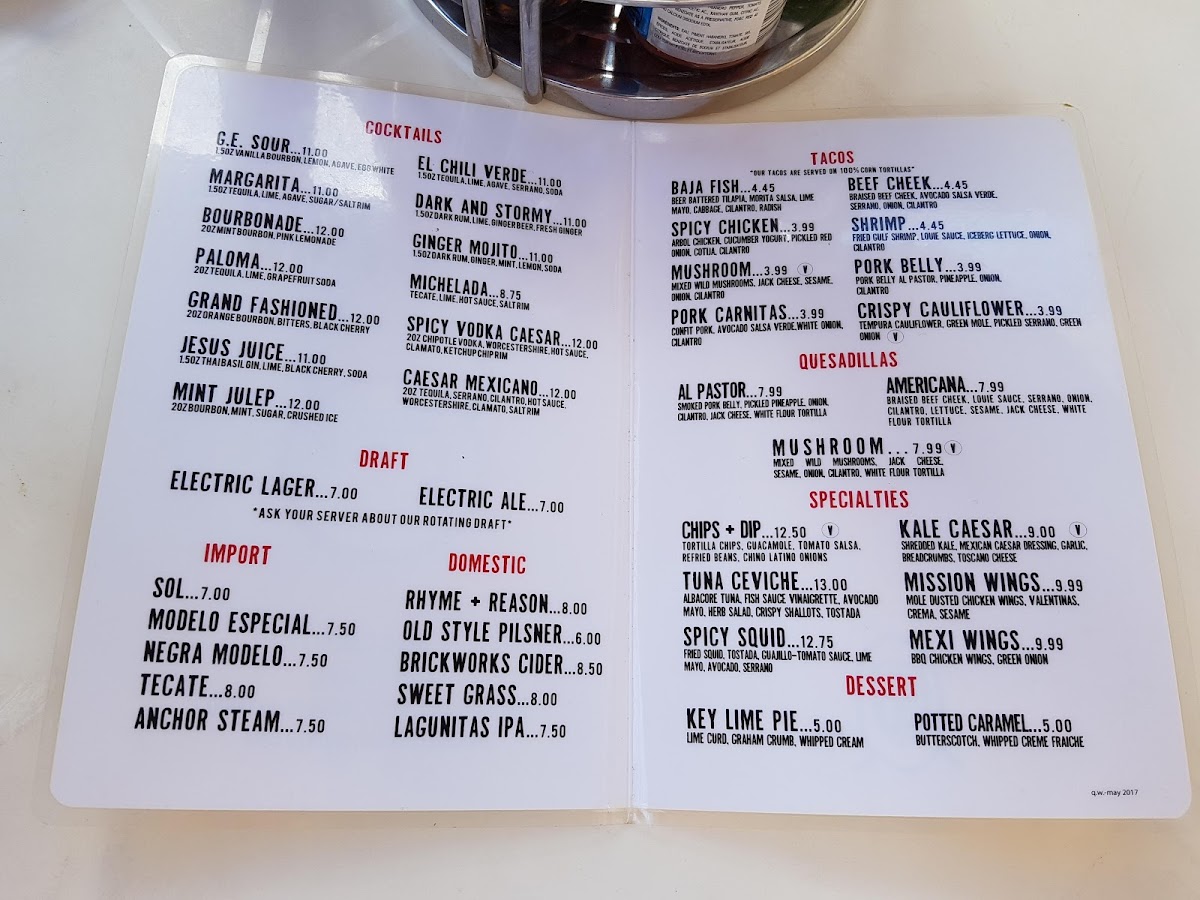 COCKTAILS
G.E. SOUR...11.00
1.5OZ VANILLA BOURBON, LEMON, AGAVE, EGG WHITE
MARGARITA...11.00
1.5OZ TEQUILA, LIME, AGAVE, SUGAR/SALT RIM
BOURBONADE...12.00
2OZ MINT BOURBON, PINK LEMONADE
PALOMA...12.00
2OZ TEQUILA, LIME, GRAPEFRUIT SODA
GRAND FASHIONED...12.00
2OZ ORANGE BOURBON, BITTERS, BLACK CHERRY
JESUS JUICE...11.00
1.5OZ THAI BASIL GIN, LIME, BLACK CHERRY, SODA
MINT JULEP...12.00
2OZ BOURBON, MINT, SUGAR, CRUSHED ICE
EL CHILI VERDE...11.00
1.5OZ TEQUILA, LIME, AGAVE, SERRANO, SODA
DARK AND STORMY...11.00
1.5OZ DARK RUM, LIME, GINGER BEER, FRESH GINGER
GINGER MOJITO...11.00
1.5OZ DARK RUM, GINGER, MINT, LEMON, SODA
MICHELADA...8.75
TECATE, LIME, HOT SAUCE, SALT RIM
SPICY VODKA CAESAR...12.00
2OZ CHIPOTLE VODKA, WORCESTERSHIRE, HOT SAUCE,
CLAMATO, KETCHUP CHIP RIM
CAESAR MEXICANO...12.00
2OZ TEQUILA, SERRANO, CILANTRO, HOT SAUCE,
WORCESTERSHIRE, CLAMATO, SALT RIM
DRAFT
ELECTRIC LAGER...7.00
ELECTRIC ALE...7.00
*ASK YOUR SERVER ABOUT OUR ROTATING DRAFT*
IMPORT
SOL...7.00
MODELO ESPECIAL...7.50
NEGRA MODELO...7.50
TECATE...8.00
ANCHOR STEAM...7.50
DOMESTIC
RHYME + REASON...8.00
OLD STYLE PILSNER...6.00
BRICKWORKS CIDER...8.50
SWEET GRASS...8.00
LAGUNITAS IPA...7.50
TACOS
"OUR TACOS ARE SERVED ON 100% CORN TORTILLAS"
BAJA FISH...4.45
BEER BATTERED TILAPIA, MORITA SALSA, LIME
MAYO, CABBAGE, CILANTRO, RADISH
SPICY CHICKEN...3.99
ARBOL CHICKEN, CUCUMBER YOGURT, PICKLED RED
ONION, COTIJA, CILANTRO
MUSHROOM...3.99 V
MIXED WILD MUSHROOMS, JACK CHEESE, SESAME,
ONION, CILANTRO
PORK CARNITAS...3.99
CONFIT PORK, AVOCADO SALSA VERDE, WHITE ONION,
CILANTRO
BEEF CHEEK...4.45
BRAISED BEEF CHEEK, AVOCADO SALSA VERDE,
SERRANO, ONION, CILANTRO
SHRIMP...4.45
FRIED GULF SHRIMP, LOUIE SAUCE, ICEBERG LETTUCE, ONION,
CILANTRO
PORK BELLY...3.99
PORK BELLY AL PASTOR, PINEAPPLE, ONION,
CILANTRO
CRISPY CAULIFLOWER...3.99
TEMPURA CAULIFLOWER, GREEN MOLE, PICKLED SERRANO, GREEN
ONION V
QUESADILLAS
AL PASTOR...7.99
SMOKED PORK BELLY, PICKLED PINEAPPLE, ONION,
CILANTRO, JACK CHEESE, WHITE FLOUR TORTILLA
AMERICANA...7.99
BRAISED BEEF CHEEK, LOUIE SAUCE, SERRANO, ONION,
CILANTRO, LETTUCE, SESAME, JACK CHEESE, WHITE
FLOUR TORTILLA
MUSHROOM...7.99 V
MIXED WILD MUSHROOMS, JACK CHEESE,
SESAME, ONION, CILANTRO, WHITE FLOUR TORTILLA
SPECIALTIES
CHIPS + DIP...12.50 V
TORTILLA CHIPS, GUACAMOLE, TOMATO SALSA,
REFRIED BEANS, CHINO LATINO ONIONS
TUNA CEVICHE...13.00
ALBACORE TUNA, FISH SAUCE VINAIGRETTE, AVOCADO
MAYO, HERB SALAD, CRISPY SHALLOTS, TOSTADA
SPICY SQUID...12.75
FRIED SQUID, TOSTADA, GUAJILLO-TOMATO SAUCE, LIME
MAYO, AVOCADO, SERRANO
KALE CAESAR...9.00 V
SHREDDED KALE, MEXICAN CAESAR DRESSING, GARLIC,
BREADCRUMBS, TOSCANO CHEESE
MISSION WINGS...9.99
MOLE DUSTED CHICKEN WINGS, VALENTINAS,
CREMA, SESAME
MEXI WINGS...9.99
BBQ CHICKEN WINGS, GREEN ONION
DESSERT
KEY LIME PIE...5.00
LIME CURD, GRAHAM CRUMB, WHIPPED CREAM
POTTED CARAMEL...5.00
BUTTERSCOTCH, WHIPPED CREME FRAICHE
q.w.-may 2017